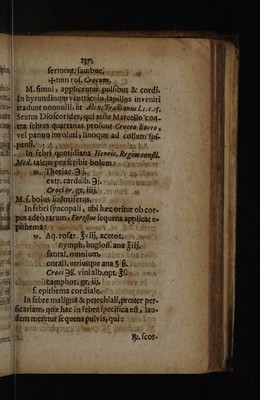 237.
ferment: sambuc.
num rof. Crocum,
M. simul, applicentur pulsibus & cordi.
In hyrundinum ventriculo lapillos inveniri
tradunt nonnulli, ut Alex. Trallianus L. 1. c. 15.
Sextus Dioscorides, qui teste Marcello con-
tra febres quartanas prosunt Croceo linteo,
vel panno involuti, linoque ad collum sus-
pensi.
In febri quotidiana Henric. Regius consil.
Med. talem præscribit bolum:
Theriac. ℈j.
extr. card. b. ℈j.
Croci or. gr. iiij.
M. f. bolus sudorificus.
In febri syncopali, ubi hæc oritur ob cor-
pus adeò rarum, Forestus sequens applicat e-
pithema:
Aq. rosar. ℥viij, acetos.
nymph. bugloss. ana ℥iij.
santal. omnium
corall. utriusque ana ʒ ß.
Croci ℈ß. vini alb. opt. ℥ß
camphor. gr. iij.
f. epithema cordiale.
In febre maligna & petechiali, præter per-
sicariam, quæ hac in febre specifica est, lau-
dem meretur sequens pulvis, qui:
℞. scor-